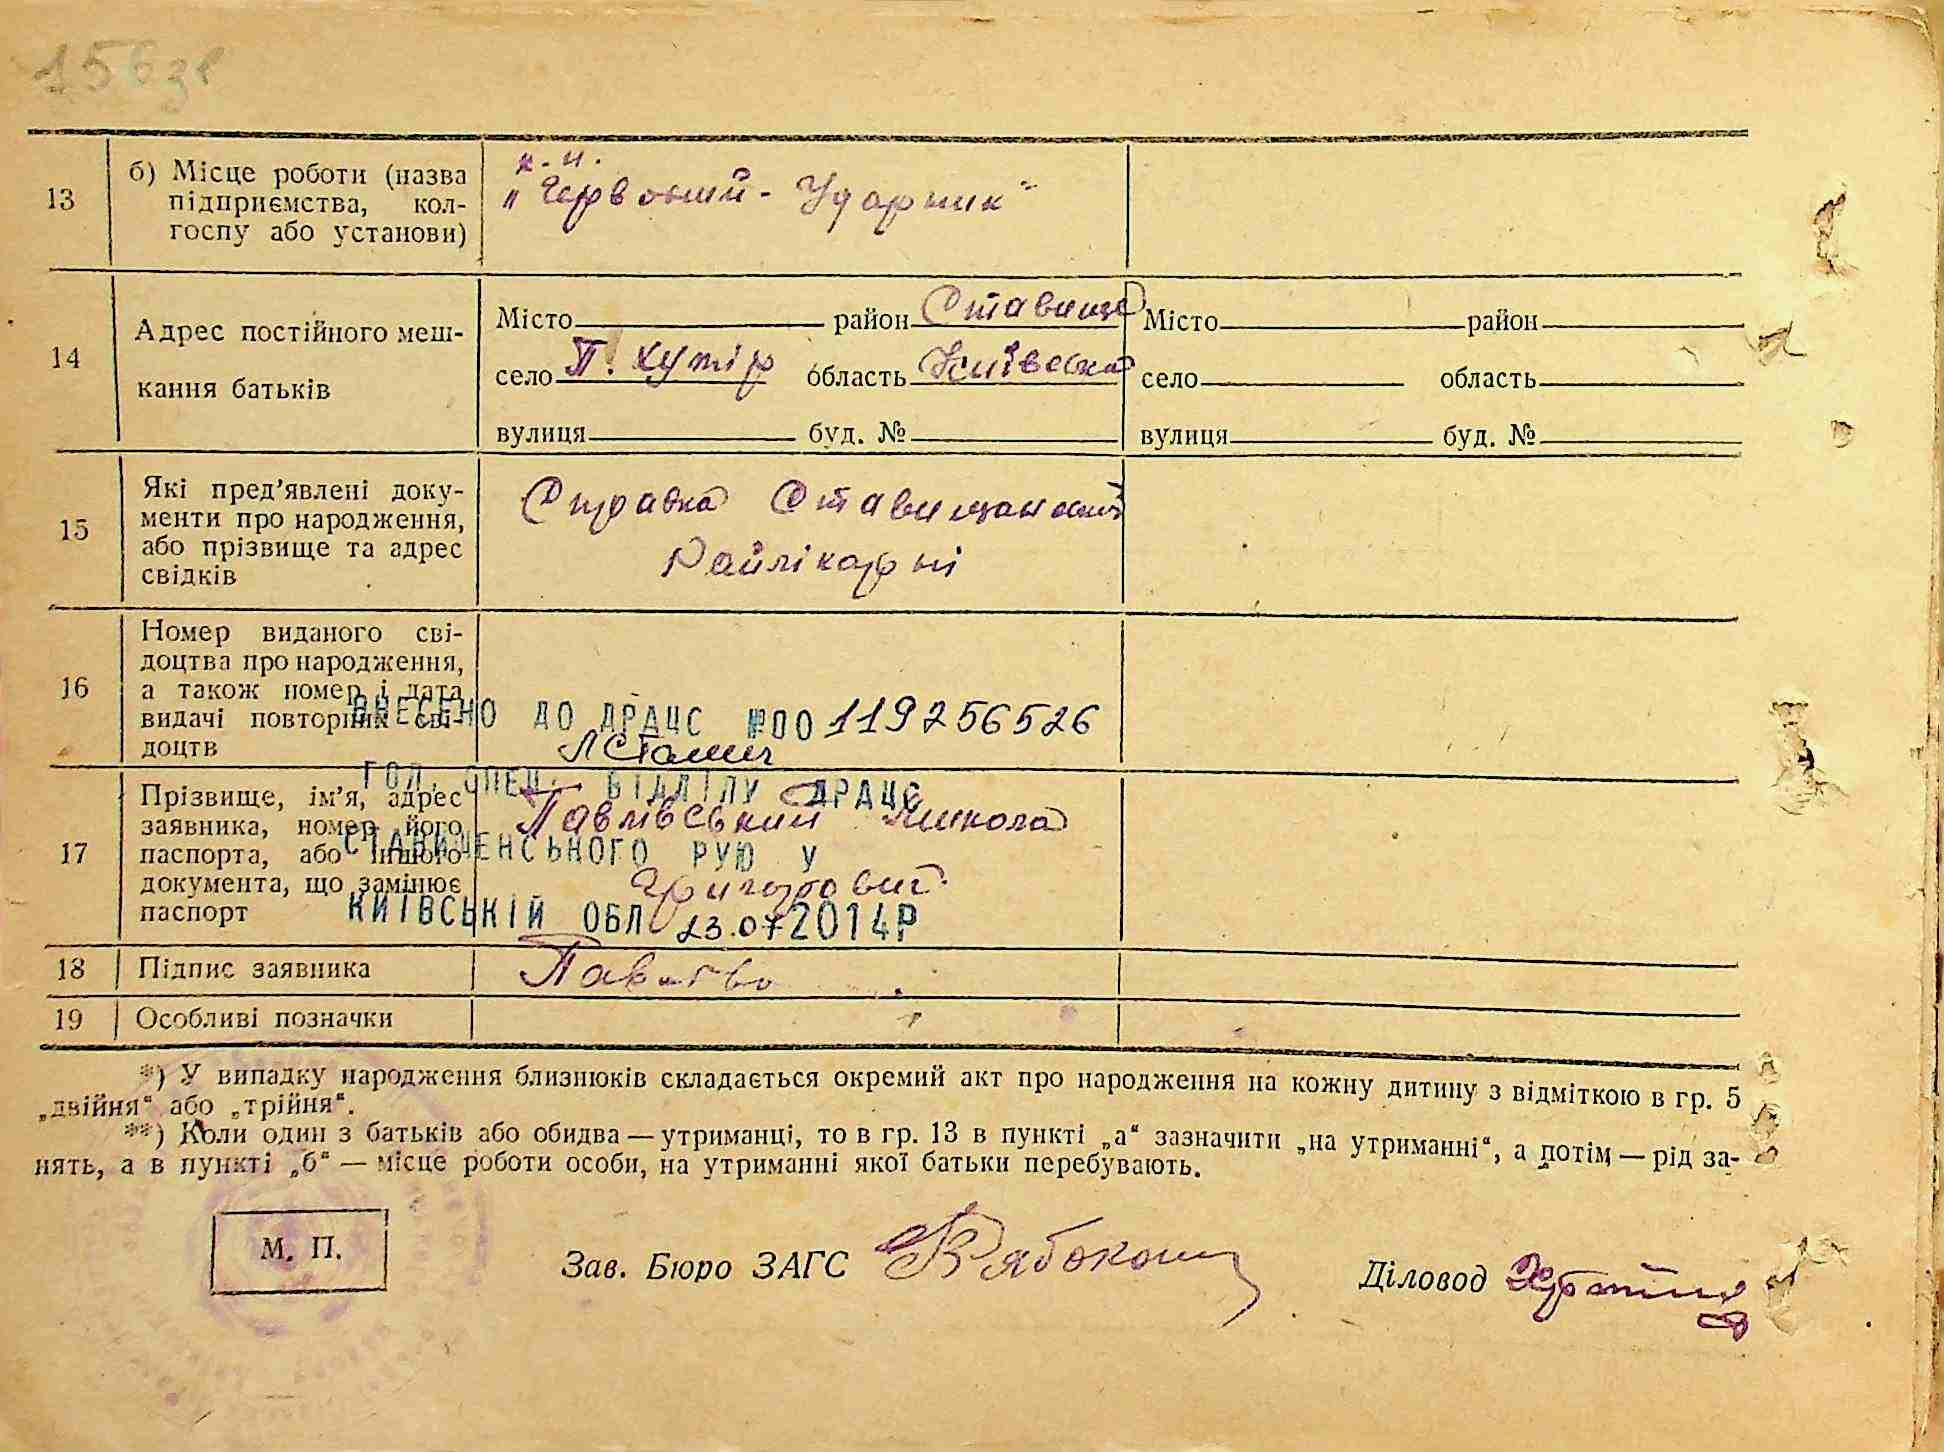 156зв
13
б) Місце роботи (назва
підприємства, кол-
госпу або установи)
к. н.
„Червоний-Ударник“
14
Адрес постійного меш-
кання батьків
Місто район Ставище
село П. хутір область Київська
вулиця буд. №
Місто район
село область
вулиця буд. №
15
Які пред'явлені доку-
менти про народження,
або прізвище та адрес
свідків
Справка Ставищанської
Райлікарні
16
Номер виданого сві-
доцтва про народження,
а також номер і дата
видачі повторних сві-
доцтв
ВНЕСЕНО ДО ДРАЦС №ПО 119256526
ГОЛ. СПЕЦ. ВІДДІЛУ ДРАЦС
СТАВИЩЕНСЬКОГО РУЮ У
КИЇВСЬКІЙ ОБЛ 23.07 2014Р
17
Прізвище, ім'я, адрес
заявника, номер його
паспорта, або іншого
документа, що замінює
паспорт
Павлівський Микола
Григорович
18
Підпис заявника
19
Особливі позначки
*) У випадку народження близнюків складається окремий акт про народження на кожну дитину з відміткою в гр. 5
„двійня“ або „трійня“.
**) Коли один з батьків або обидва — утриманці, то в гр. 13 в пункті „а“ зазначити „на утриманні“, а потім — рід за-
нять, а в пункті „б“ — місце роботи особи, на утриманні якої батьки перебувають.
М. П.
Зав. Бюро ЗАГС Рябокони
Діловод